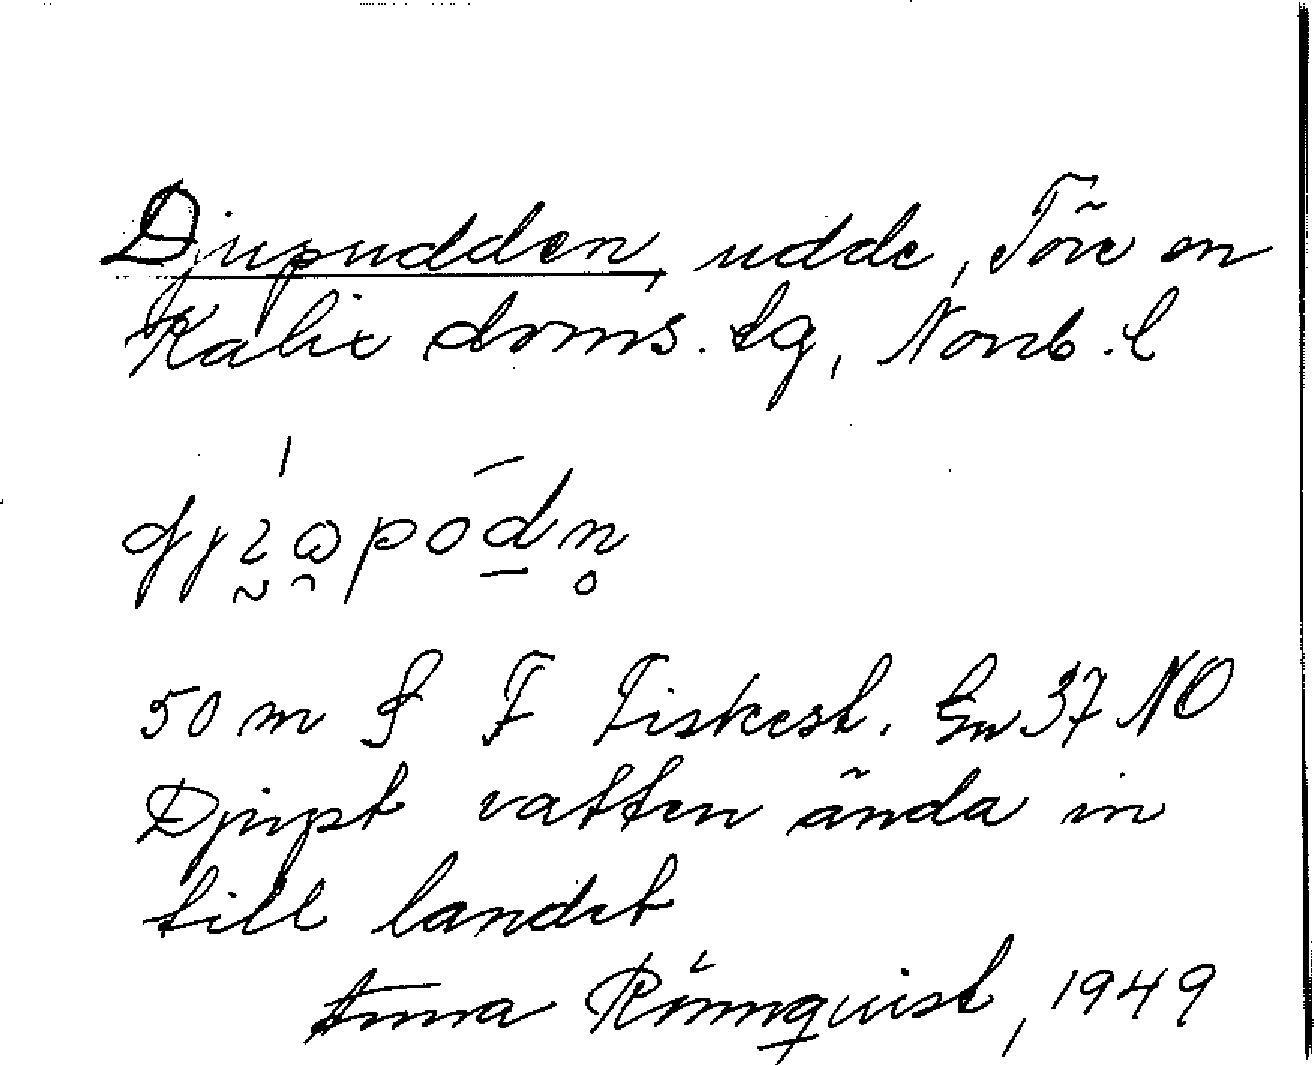 Djupudden, udde, Töre sn
Kalix doms. tg, Norrb. l
50 m S F Fiskest. Gn 37 NO
Djupt vatten ända in
till landet
Anna Rönnquist, 1949